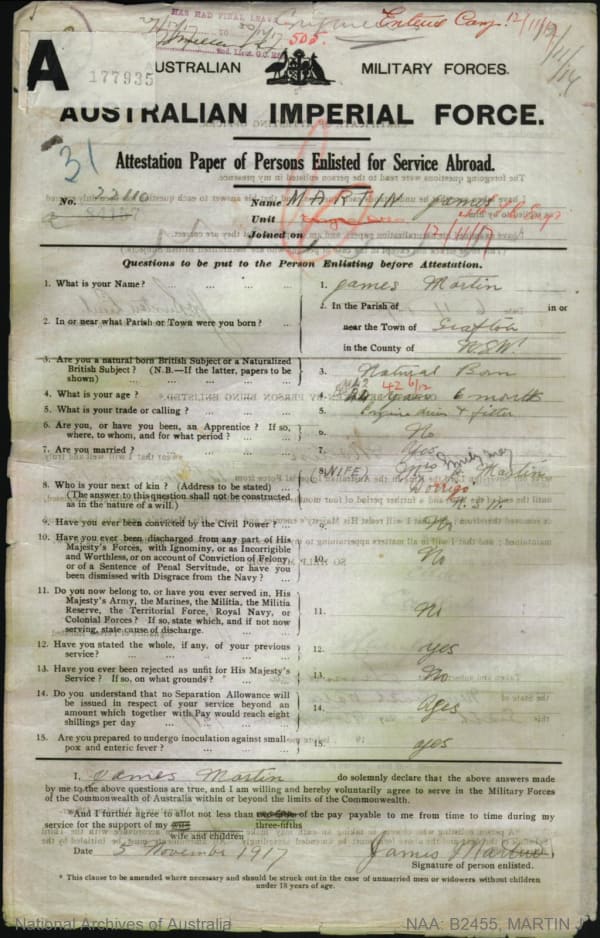 HAS HAD FINAL LEAVE
TO
505
Enters Camp. 12/11/17
A
177935
AUSTRALIAN MILITARY FORCES.
AUSTRALIAN IMPERIAL FORCE.
31
Attestation Paper of Persons Enlisted for Service Abroad.
No.
Name MARTIN James
Unit
Joined on 12/11/17
Questions to be put to the Person Enlisting before Attestation.
1. What is your Name? ... ... ... 1. James Martin
2. In or near what Parish or Town were you born? ... 2. In the Parish of in or
near the Town of Grafton
in the County of N.S.W.
3. Are you a natural born British Subject or a Naturalized
British Subject? (N.B.—If the latter, papers to be
shown) ... ... ... ... 3. Natural Born
4. What is your age? ... ... ... 4. 42 6/12 6 months
5. What is your trade or calling? ... ... ... 5. Engine driver & fitter
6. Are you, or have you been, an Apprentice? If so,
where, to whom, and for what period? ... ... 6. No
7. Are you married? ... ... ... 7. Yes
8. Who is your next of kin? (Address to be stated) ...
(The answer to this question shall not be construed
as in the nature of a will.) 8. (WIFE) Mrs Emily Martin
Dorrigo
N.S.W.
9. Have you ever been convicted by the Civil Power? ... 9. No
10. Have you ever been discharged from any part of His
Majesty's Forces, with Ignominy, or as Incorrigible
and Worthless, or on account of Conviction of Felony,
or of a Sentence of Penal Servitude, or have you
been dismissed with Disgrace from the Navy? ... 10. No
11. Do you now belong to, or have you ever served in, His
Majesty's Army, the Marines, the Militia, the Militia
Reserve, the Territorial Force, Royal Navy, or
Colonial Forces? If so, state which, and if not now
serving, state cause of discharge. 11. No
12. Have you stated the whole, if any, of your previous
service? ... ... ... ... 12. yes
13. Have you ever been rejected as unfit for His Majesty's
Service? If so, on what grounds? ... ... 13. No
14. Do you understand that no Separation Allowance will
be issued in respect of your service beyond an
amount which together with Pay would reach eight
shillings per day ... ... ... 14. Yes
15. Are you prepared to undergo inoculation against small-
pox and enteric fever? ... ... ... 15. yes
I, James Martin do solemnly declare that the above answers made
by me to the above questions are true, and I am willing and hereby voluntarily agree to serve in the Military Forces
of the Commonwealth of Australia within or beyond the limits of the Commonwealth.
* And I further agree to allot not less than two-fifths of the pay payable to me from time to time during my
three-fifths
service for the support of my wife
wife and children
Date 5 November 1917 James Martin
Signature of person enlisted.
* This clause to be amended where necessary and should be struck out in the case of unmarried men or widowers without children
under 18 years of age.
National Archives of Australia NAA: B2455, MARTIN J